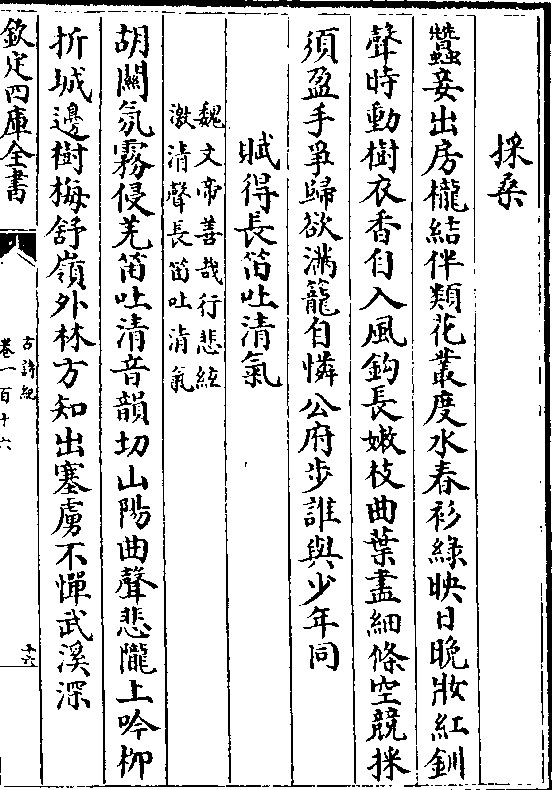 採桑
蠶妾出房櫳結伴類花叢度水春衫綠映日晚妝紅釧
聲時動樹衣香自入風鈎長嫩枝曲葉盡細條空競採
須盈手爭歸欲滿籠自憐公府步誰與少年同
賦得長笛吐清氣
魏文帝善哉行悲絃
激清聲長笛吐清氣
胡關氛霧侵羌笛吐清音韻切山陽曲聲悲隴上吟栁
折城邊樹梅舒嶺外林方知出塞虜不憚武溪深
欽定四庫全書
古詩紀
卷一百十六
十六